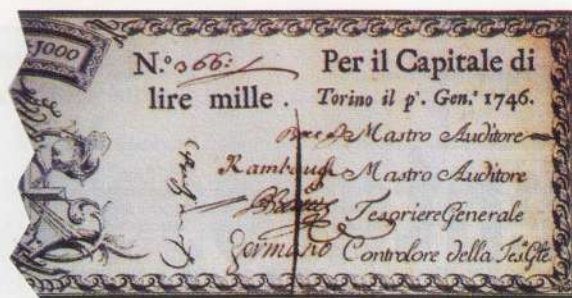 1000
N.º 366: Per il Capitale di
lire mille. Torino il p.º Gen.º 1746.
Mastro Auditore
Mastro Auditore
Tesoriere Generale
Germano Controlore della Tes.ª Gle